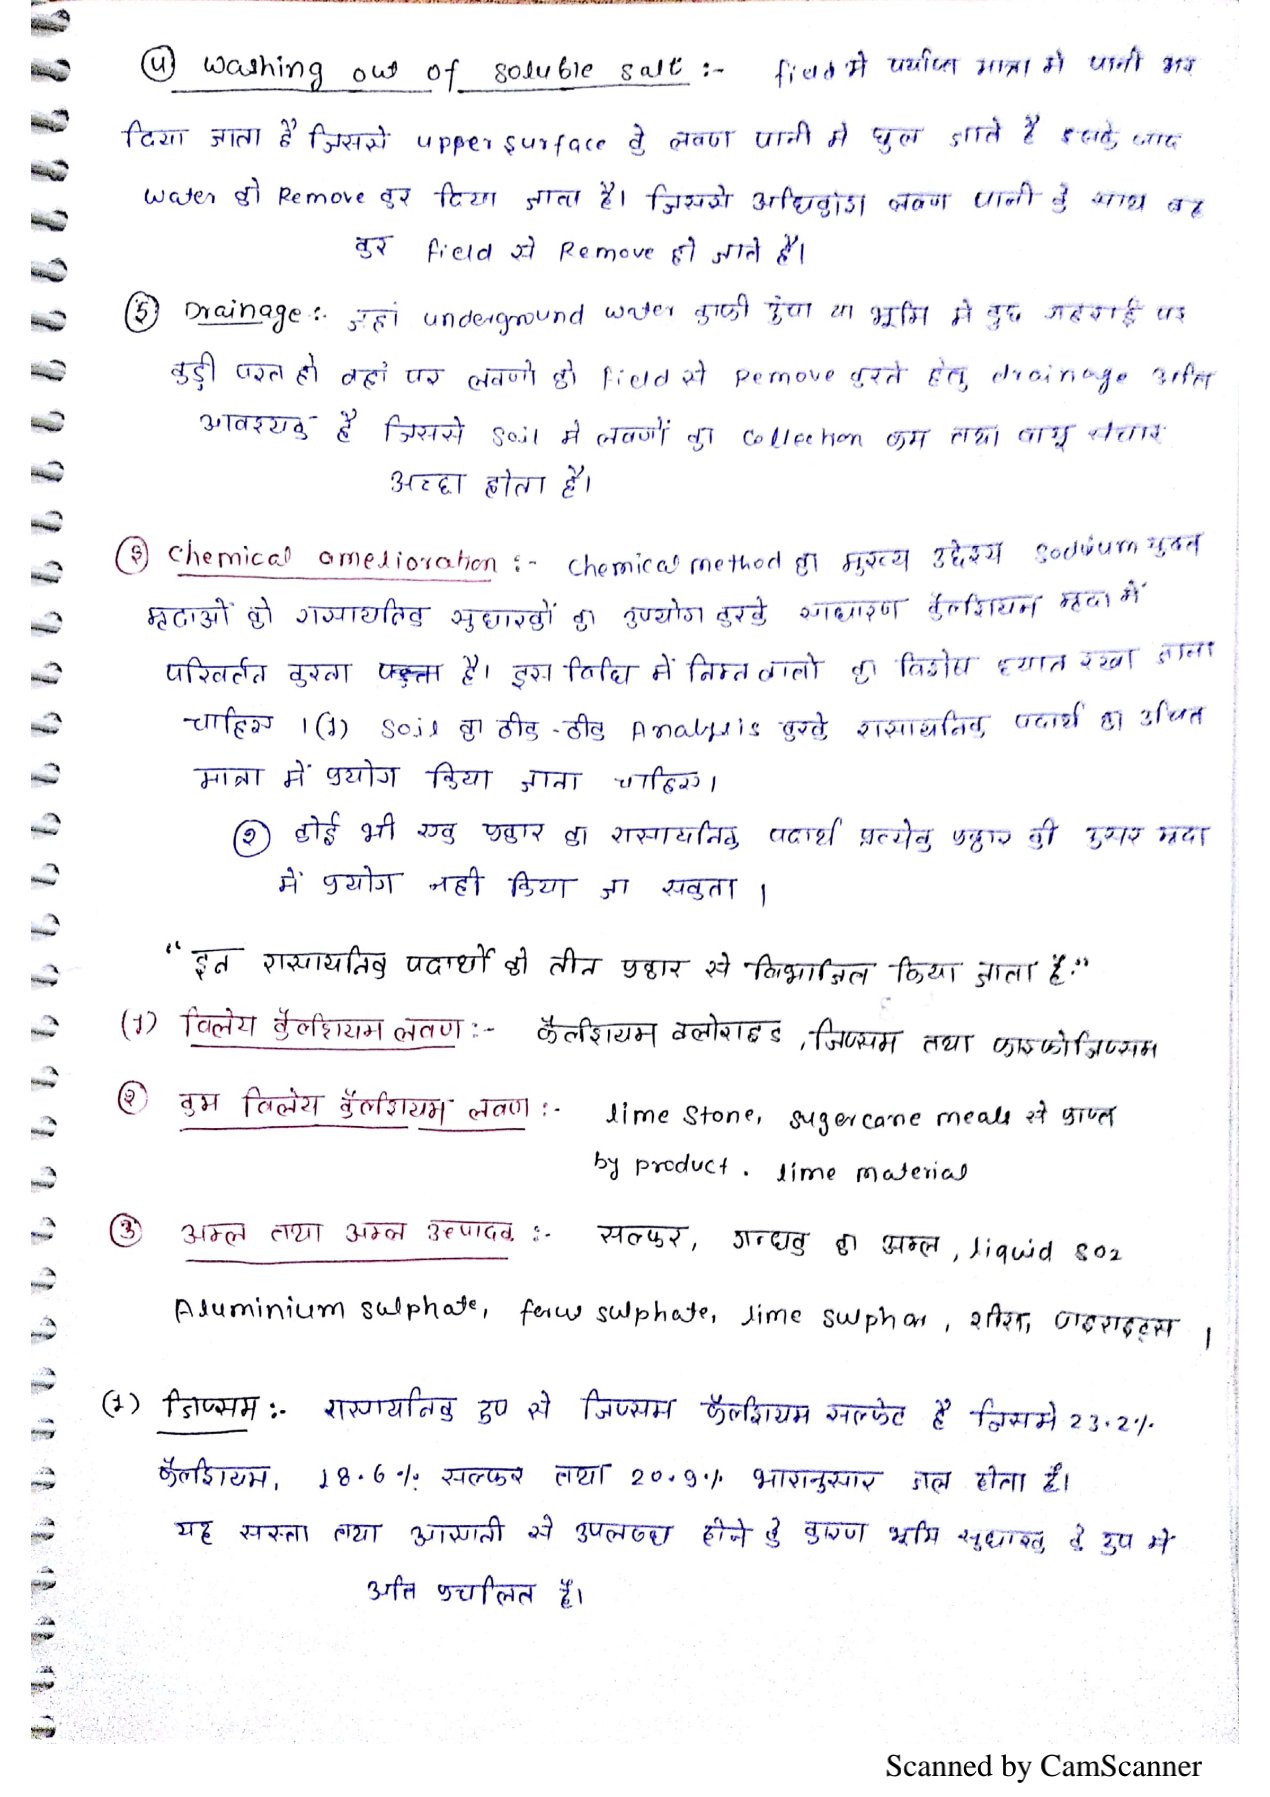 ④ Washing out of soluble salt :- field मे पर्याप्त मात्रा मे पानी भर
दिया जाता है जिससे upper surface के लवण पानी मे घुल जाते है इसके बाद
water को Remove कर दिया जाता है। जिससे अधिकांश लवण पानी के साथ बह
कर field से Remove हो जाते है।
⑤ Drainage :- जहां underground water काफी ऊंचा या भूमि मे कुछ गहराई पर
कड़ी परत हो वहां पर लवणो को field से Remove करने हेतु drainage अति
आवश्यक है जिससे soil मे लवणों का Collection कम तथा वायु संचार
अच्छा होता है।
③ Chemical amelioration :- Chemical method का मुख्य उद्देश्य Sodium युक्त
मृदाओं को रासायनिक सुधारकों का उपयोग करके साधारण कैल्शियम मृदा में
परिवर्तन करना है। इस विधि में निम्न बातो का विशेष ध्यान रखा जाना
चाहिए । (1) Soil का ठीक-ठीक Analysis करके रासायनिक पदार्थ का उचित
मात्रा में प्रयोग किया जाना चाहिए।
② कोई भी एक प्रकार का रासायनिक पदार्थ प्रत्येक प्रकार की ऊसर मृदा
में प्रयोग नही किया जा सकता ।
“इन रासायनिक पदार्थो को तीन प्रकार से विभाजित किया जाता है:”
(1) विलेय कैल्शियम लवण :- कैल्शियम क्लोराइड, जिप्सम तथा फास्फोजिप्सम
② कम विलेय कैल्शियम लवण :- lime stone, sugercane meals से प्राप्त
by product. lime material
③ अम्ल तथा अम्ल उत्पादक :- सल्फर, गन्धक का अम्ल, liquid SO2
Aluminium sulphate, ferus sulphate, lime sulphar, शीरा, पाइराइट्स ।
(1) जिप्सम :- रासायनिक रुप से जिप्सम कैल्शियम सल्फेट है जिसमे 23.2%
कैल्शियम, 18.6% सल्फर तथा 20.9% भारानुसार जल होता है।
यह सस्ता तथा आसानी से उपलब्ध होने के कारण भूमि सुधारक के रुप मे
अति प्रचलित है।
Scanned by CamScanner